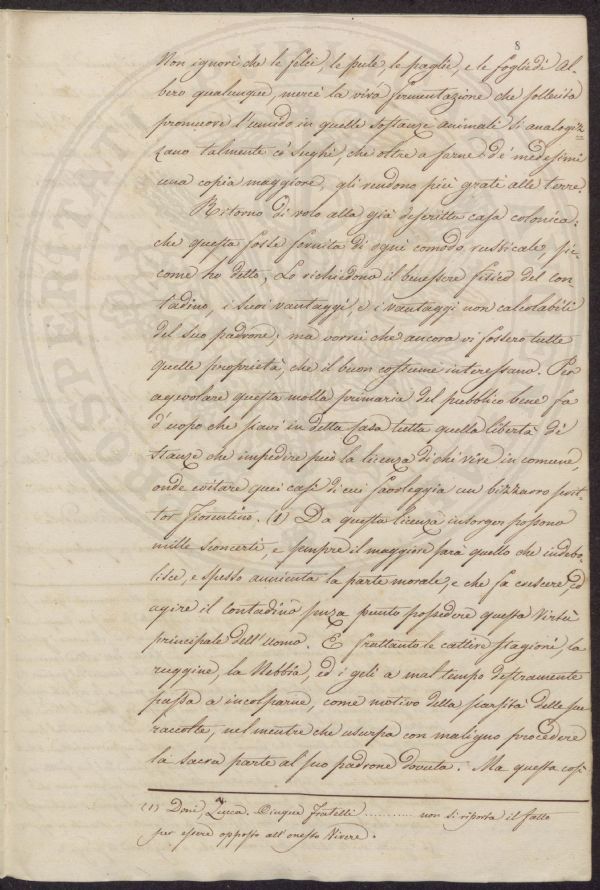 8
Non ignori che le felci, le pule, le paglie, e le foglie di Al-
bero qualunque, mercè la viva fermentazione che sollecita
promuove l'umido in quelle sostanze animali si analogiz-
zano talmente co' sughi, che oltre a farne de' medesimi
una copia maggiore, gli rendono più grati alle terre.
Ritorno di volo alla già descritta casa colonica:
che questa fosse fornita di ogni comodo rusticale, sic-
come ho detto, Lo richiedono il benessere fisico del con-
tadino, i suoi vantaggi, e i vantaggi non calcolabili
del suo padrone; ma vorrei che ancora vi fossero tutte
quelle proprietà, che il buon costume interessano. Per
agevolare questa molla primaria del pubblico bene fa
d'uopo che siavi in detta Casa tutta quella libertà di
stanze che impedire può la licenza di chi vive in comune,
onde evitare quei casi di cui favoleggia un bizzarro scrit-
tor Fiorentino. (1) Da questa licenza insorger possono
mille sconcerti, e sempre il maggiore sarà quello che indebo-
lisce, e spesso annienta la parte morale, e che fa crescere, ed
agire il contadino senza punto possedere questa Virtù
principale dell'Uomo. E frattanto le cattive stagioni, la
ruggine, la Nebbia, ed i geli a mal tempo destramente
passa a incolparne, come motivo della scarsità delle sue
raccolte, nel mentre che usurpa con maligno procedere
la sacra parte al suo padrone dovuta. Ma questa cosi
(1) Doni, Zucca. Cinque Fratelli ............ non si riporta il fatto
per essere opposto all'onesto Vivere.
PROSPERITATI